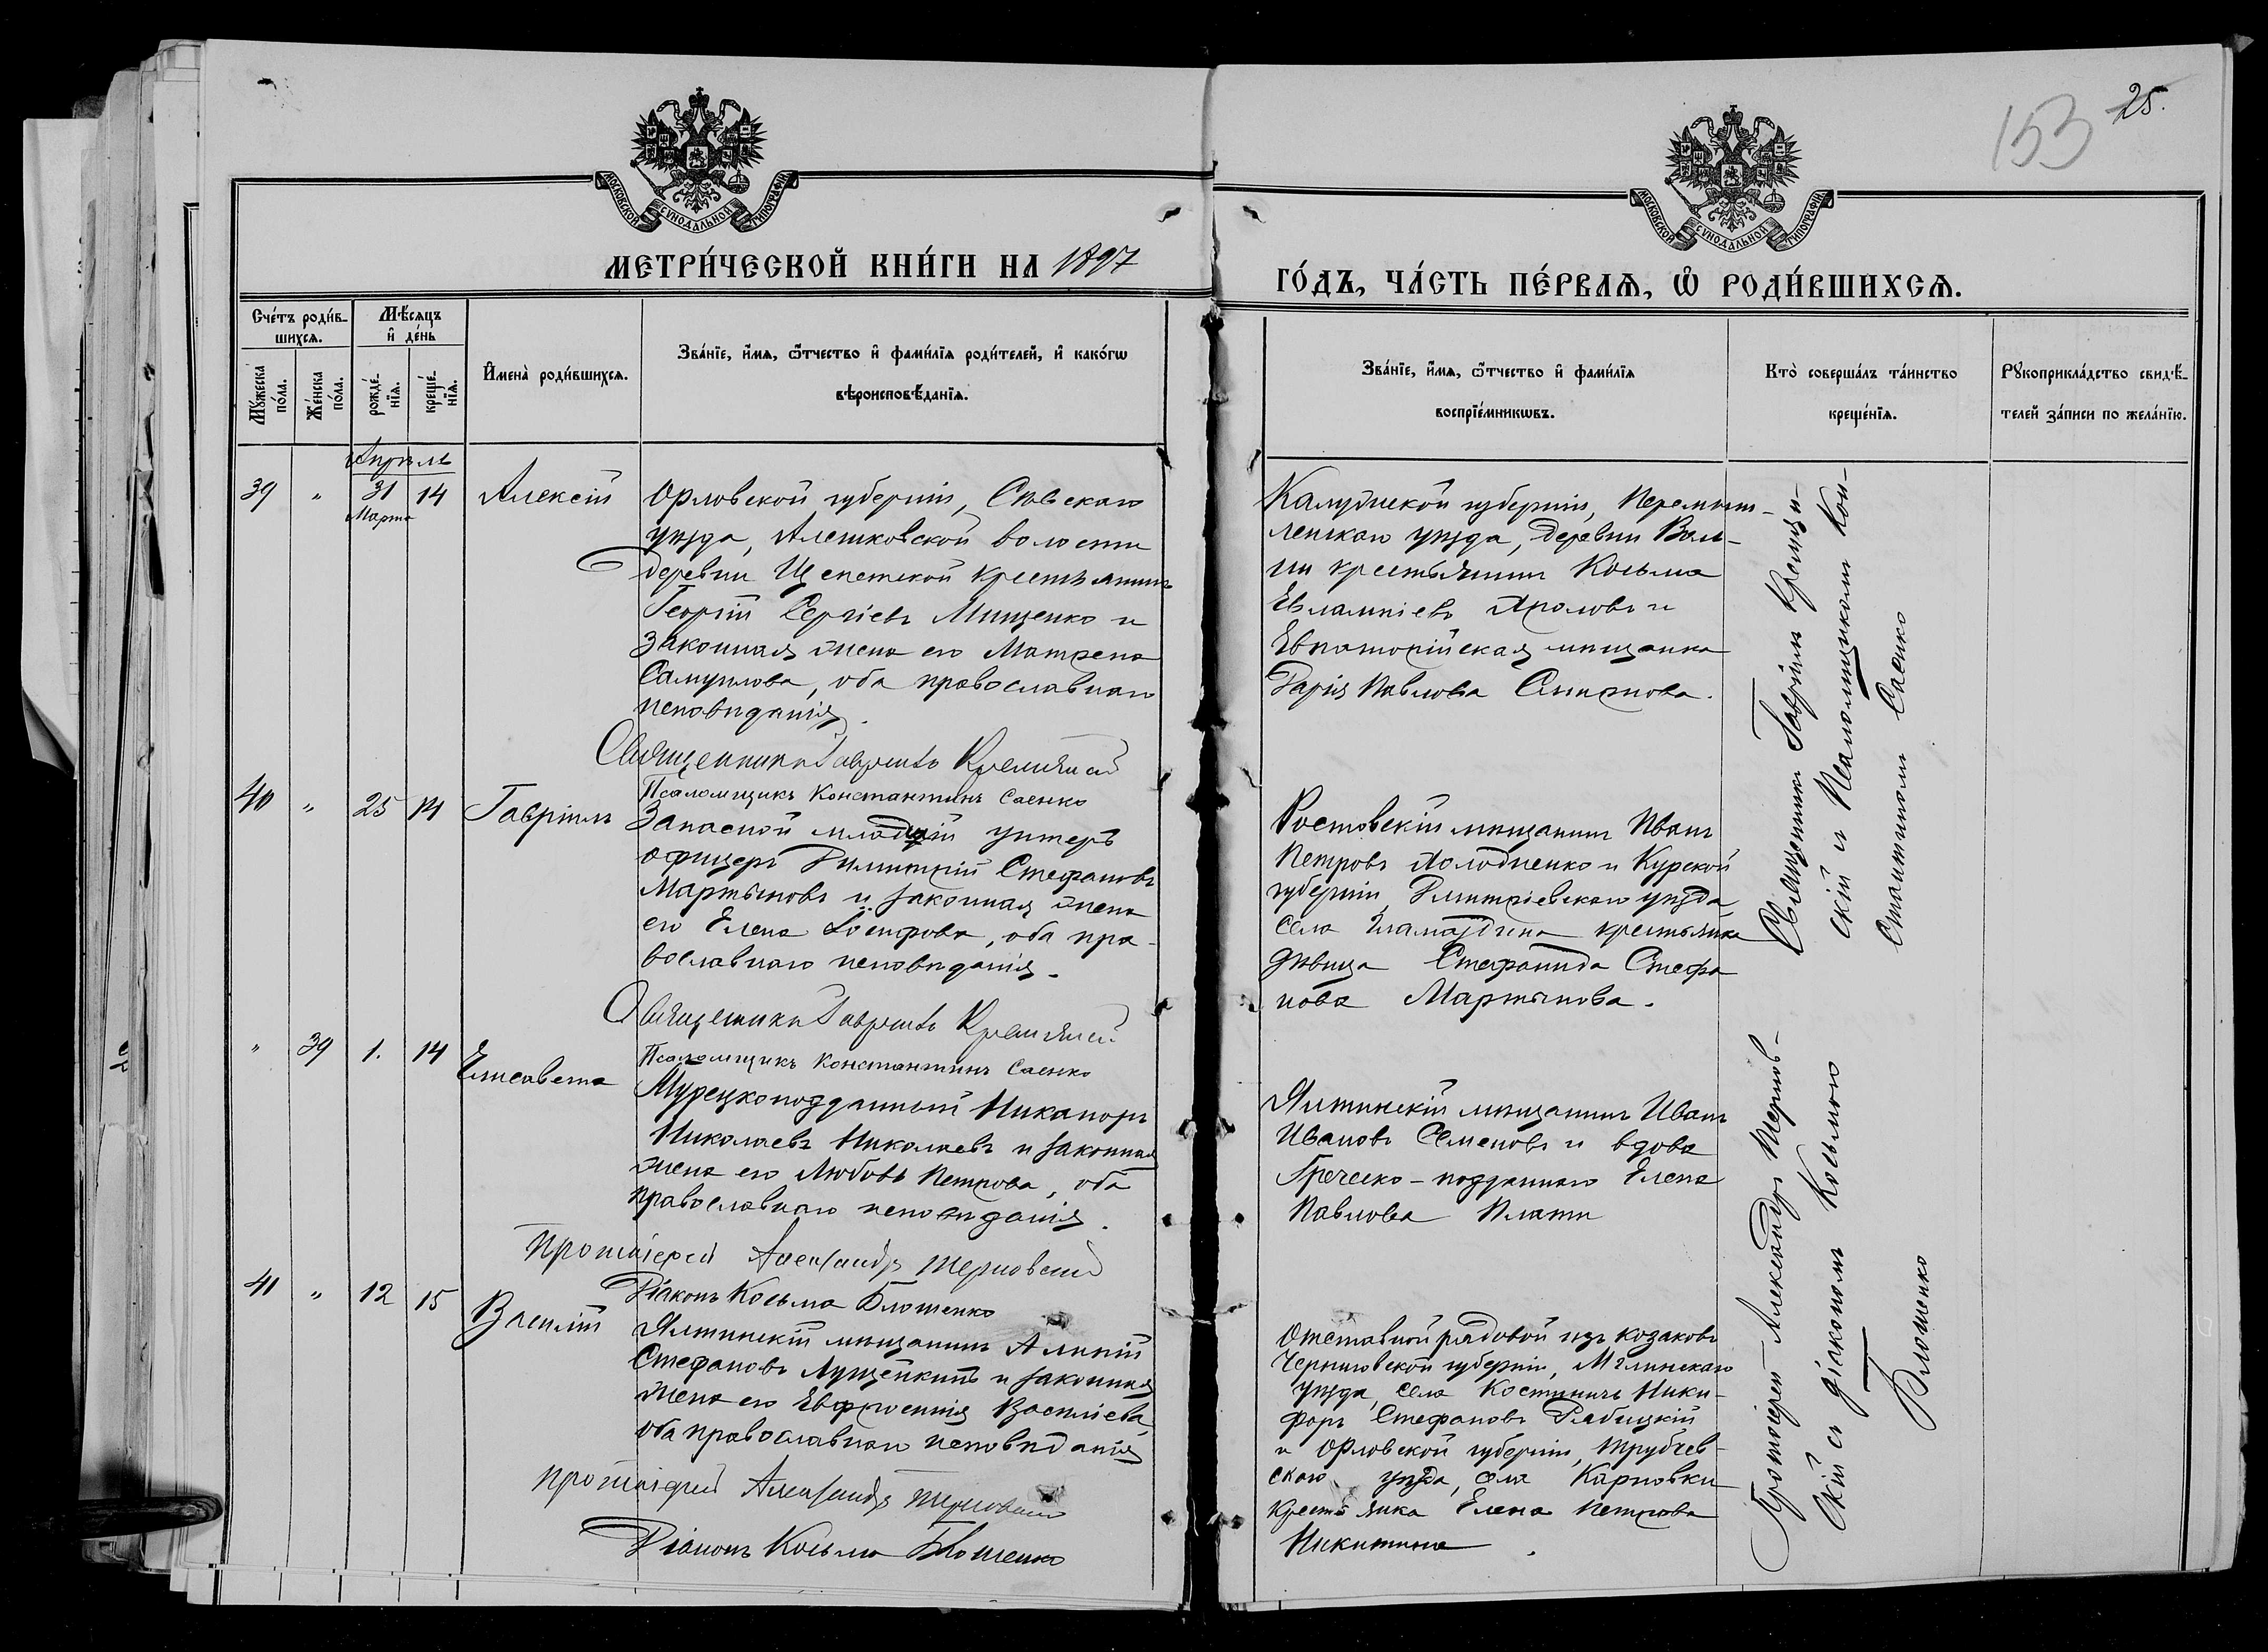 153
25.
МОСКОВСКОЙ СѴНОДАЛЬНОЙ ТИПОГРАФІИ
МОСКОВСКОЙ СѴНОДАЛЬНОЙ ТИПОГРАФІИ
МЕТРИ́ЧЕСКОЙ КНИ́ГИ НА 1897
ГО́ДЪ, ЧА́СТЬ ПЕ́РВАѦ, Ѡ҆ РОДИ́ВШИХСѦ.
Сче́тъ роди́в-
шихсѧ.
Мꙋ́жеска по́ла.
Же́нска по́ла.
Мѣ́сѧцъ
и҆ де́нь
рожде́-
нїѧ.
креще́-
нїѧ.
И҆мена̀ роди́вшихсѧ.
Зва́нїе, и҆́мѧ, ѻ҆́тчество и҆ фами́лїѧ роди́телей, и҆ како́гѡ
вѣроисповѣ́данїѧ.
Зва́нїе, и҆́мѧ, ѻ҆́тчество и҆ фами́лїѧ
воспрїе́мникѡвъ.
Кто̀ соверша́лъ та́инство
креще́нїѧ.
Рꙋкоприкла́дство свидѣ́-
телей за́писи по жела́нїю.
Апрѣль
39 " 31 14 Алексій
Марта
Орловской губерніи, Сѣвскаго
уѣзда, Алешковской волости
деревни Щепетской крестьянинъ
Георгій Сергіевъ Мищенко и
законная жена его Матрена
Самуилова, оба православнаго
исповѣданія.
Священникъ Гавріилъ Кремянскій
Псаломщикъ Константинъ Саенко
Калужской губерніи, Перемыш-
льскаго уѣзда, деревни
крестьянинъ Косьма
Евлампіевъ и
Евпаторійская мѣщанка
Дарія Павлова Смирнова.
Священникъ Гавріилъ
скій съ Псаломщикомъ Кон-
стантиномъ Саенко
40 " 25 14 Гавріилъ
Запасной младшій унтеръ
офицеръ Димитрій Стефановъ
Мартыновъ и законная жена
его Елена, оба пра-
вославнаго исповѣданія.
Священникъ Гавріилъ Кремянскій
Псаломщикъ Константинъ Саенко
Ростовскій мѣщанинъ Иванъ
Петровъ Холодненко и Курской
губерніи Дмитріевскаго уѣзда,
села крестьянка
дѣвица Стефанида Стефа
нова Мартынова.
" 39 1. 14 Елисавета
Турецкоподданный Никаноръ
Николаевъ Николаевъ и законная
жена его Любовь Петрова, оба
православнаго исповѣданія.
Протоіерей Александръ Терновскій
Діаконъ Косьма Блошенко
Ялтинскій мѣщанинъ Иванъ
Ивановъ Семеновъ и вдова
Греческо-подданнаго Елена
Павлова Плати
Протоіерей Александръ Тернов-
скій съ діакономъ Косьмою
Блошенко
41 " 12 15 Василій
Ялтинскій мѣщанинъ Алипій
Стефановъ и законная
жена его Евфросинія Василіева
оба православнаго исповѣданія
протоіерей Александръ Терновскій
Діаконъ Косьма Блошенко
Отставной рядовой изъ козаковъ
Черниговской губерніи, Мглинскаго
уѣзда, села Костиничъ Ники-
форъ Стефановъ Рябицкій
и Орловской губерніи, Трубчев-
скаго уѣзда, села Карповки
крестьянка Елена Петрова
Никитина.